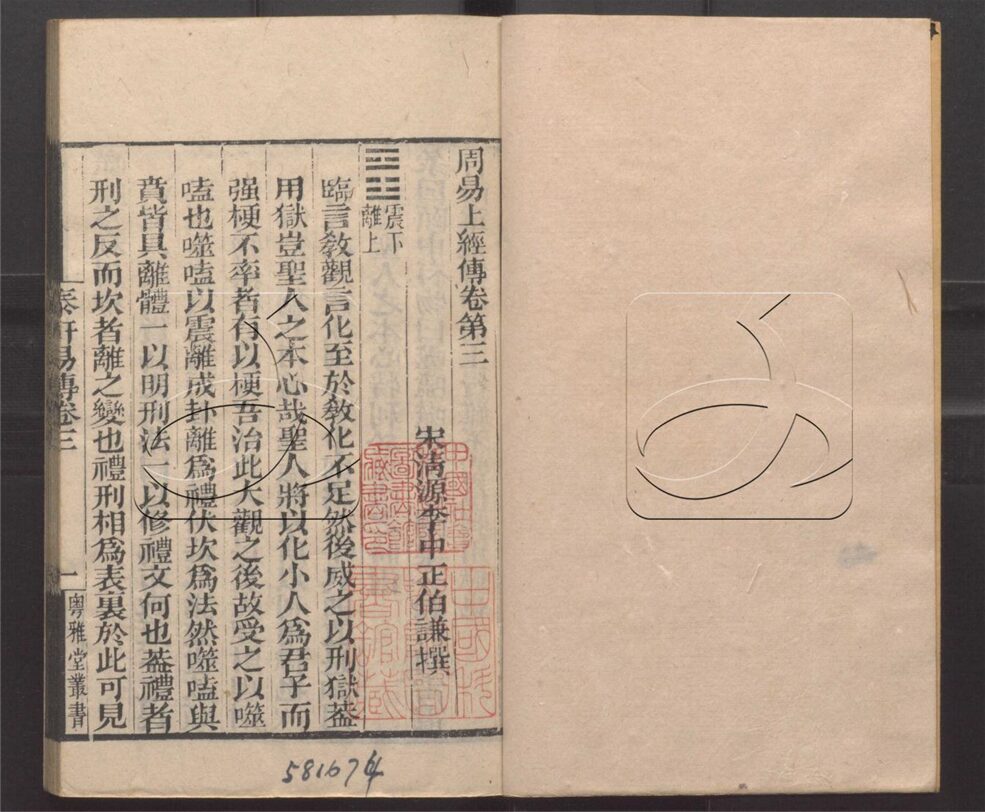 周易上經傳卷第三
宋清源李中正伯謙撰
震下
離上
臨言敎觀言化至於敎化不足然後威之以刑獄葢
用獄豈聖人之本心哉聖人將以化小人爲君子而
强梗不率者有以梗吾治此大觀之後故受之以噬
嗑也噬嗑以震離成卦離爲禮伏坎爲法然噬嗑與
賁皆具離體一以明刑法一以修禮文何也葢禮者
刑之反而坎者離之變也禮刑相爲表裏於此可見
泰軒易傳卷三
一
粵雅堂叢書
581674